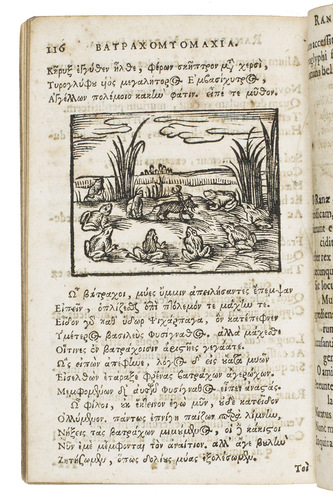 116 ΒΑΤΡΑΧΟΜΥΟΜΑΧΙΑ.
Κῆρυξ ἐγγύθεν ἦλθε, φέρων σκῆπτρον μετὰ χερσὶ,
Τυρογλύφου υἱὸς μεγαλήτορος Ἐμβασίχυτρος,
Ἀγγέλλων πολέμοιο κακὴν φάτιν. εἶπέ τε μῦθον.
Ὦ βάτραχοι, μύες ὔμμιν ἀπειλήσαντες ἔπεμψαν
Εἰπεῖν, ὁπλίζεσθε ἐπὶ πόλεμόν τε μάχην τε.
Εἶδον γὰρ καθ' ὕδωρ Ψιχάρπαγα, ὃν κατέπεφνεν
Ὑμέτερος βασιλεὺς Φυσίγναθος, ἀλλὰ μάχεσθε
Οἵτινες ἐν βατράχοισιν ἀριστῆες γεγάατε.
Ὣς εἰπὼν ἀπέφηνε, λόγος δ' εἰς οὔατα μυῶν
Εἰσελθὼν ἐτάραξε φρένας βατράχων ἀγερώχων.
Μεμφομένων δ' αὐτῶν Φυσίγναθος εἶπεν ἀναστάς.
Ὦ φίλοι, οὐκ ἔκτεινον ἐγὼ μῦν, οὐδὲ κατεῖδον
Ὀλλύμενον. πάντως ἐπνίγη παίζων παρὰ λίμνην,
Νήξεις τὰς βατράχων μιμούμενος, οἱ δὲ κάκιστοι
Νῦν ἐμὲ μέμφονται τὸν ἀναίτιον. ἀλλ' ἄγε βουλὴν
Ζητήσωμεν, ὅπως δολίους μύας ἐξολέσωμεν.
Τοὶ
RAN